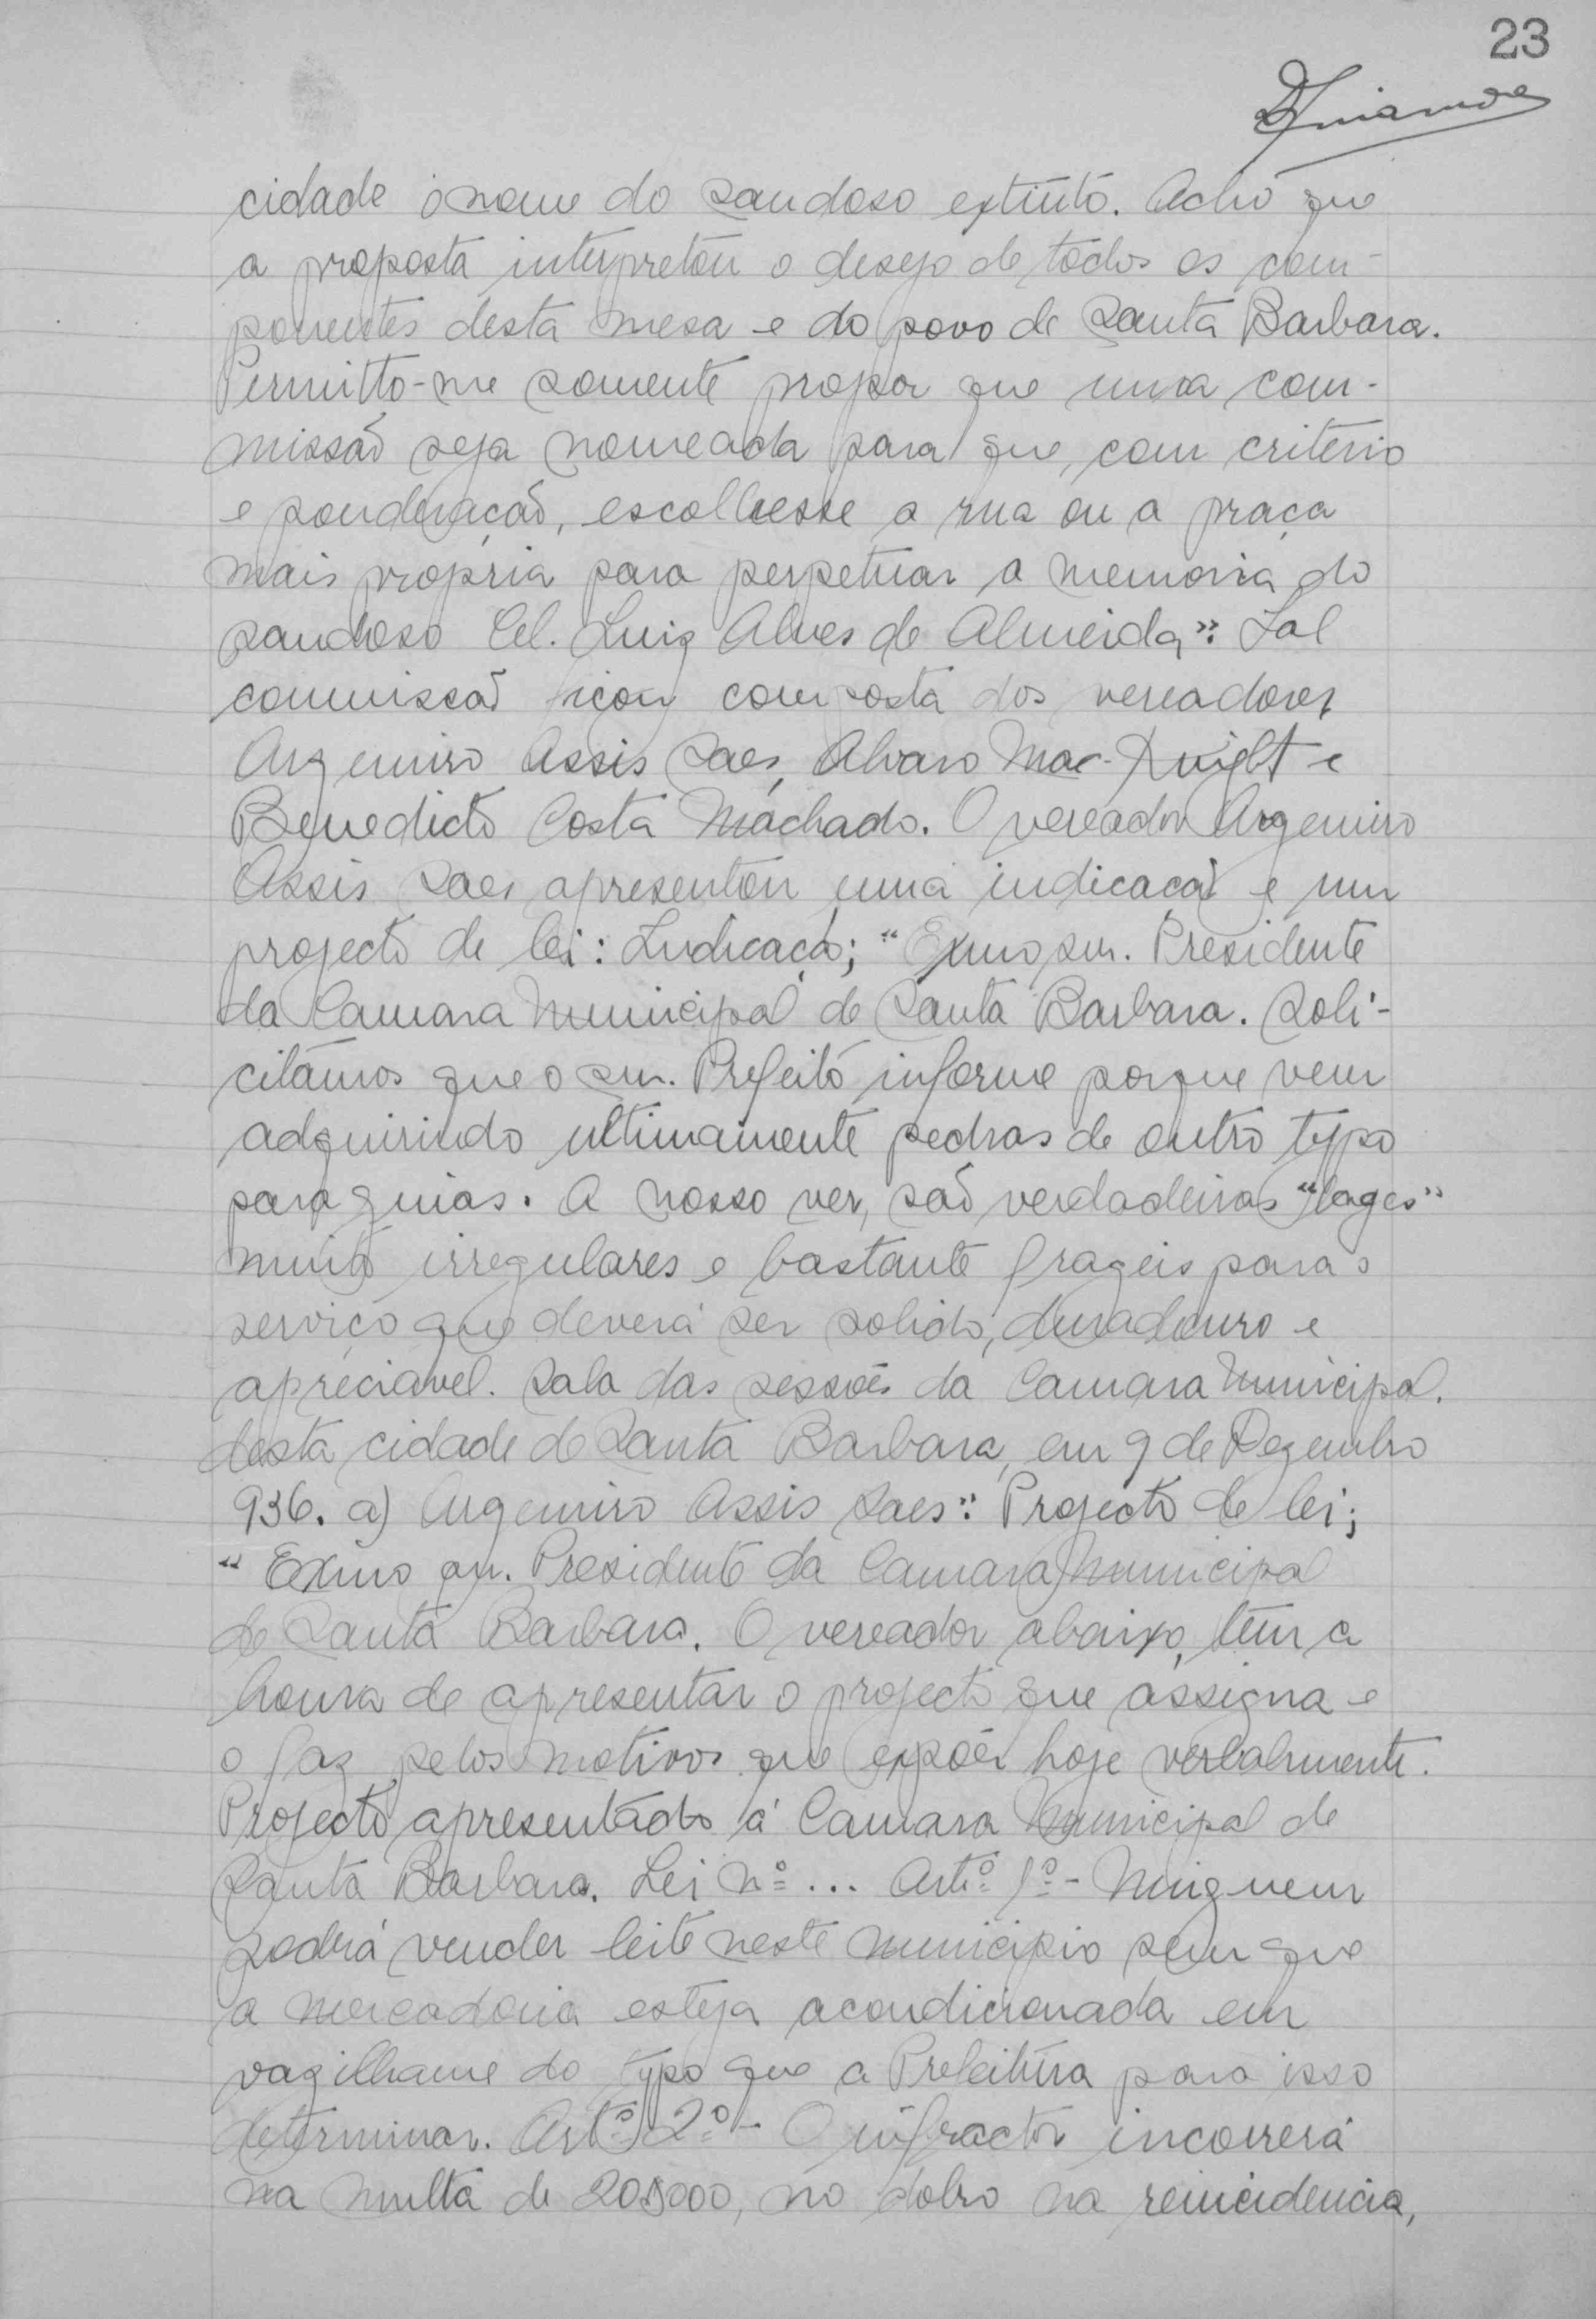 23
cidade o nome do saudoso extinto. Acho que
a proposta interpretou o desejo de todos os com-
ponentes desta mesa e do povo de Santa Barbara.
Permitto-me somente propor que uma com-
missão seja nomeada para que, com criterio
e ponderação, escolhesse a rua ou a praça
mais propria para perpetuar a memoria do
saudoso Cel. Luiz Alves de Almeida". Tal
commissão ficou composta dos vereadores
Argemiro Assis Saes, Alvaro Mac-Knight e
Benedicto Costa Machado. O vereador Argemiro
Assis Saes apresentou uma indicacão e um
projecto de lei: Indicação; "Exmo snr. Presidente
da Camara Municipal de Santa Barbara. Soli-
citamos que o snr. Prefeito informe porque vem
adquirindo ultimamente pedras de outro typo
para guias. A nosso ver, são verdadeiras "lages"
muito irregulares e bastante frageis para o
serviço que deverá ser solido, duradouro e
apreciavel. Sala das sessões da Camara Municipal.
desta cidade de Santa Barbara, em 9 de Dezembro
936. a) Argemiro Assis Saes". Projecto de lei;
" Exmo snr. Presidente da Camara Municipal
de Santa Barbara. O vereador abaixo, tem a
honra de apresentar o projecto que assigna e
o faz pelos motivos que expõe hoje verbalmente.
Projecto apresentado á Camara Municipal de
Santa Barbara. Lei nº ... Artº 1º - Ninguem
poderá vender leite neste municipio sem que
a mercadoria esteja acondicionada em
vazilhame do typo que a Prefeitura para isso
determinar. Artº 2º - O infractor incorrerá
na multa de 20$000, no dobro na reincidencia,